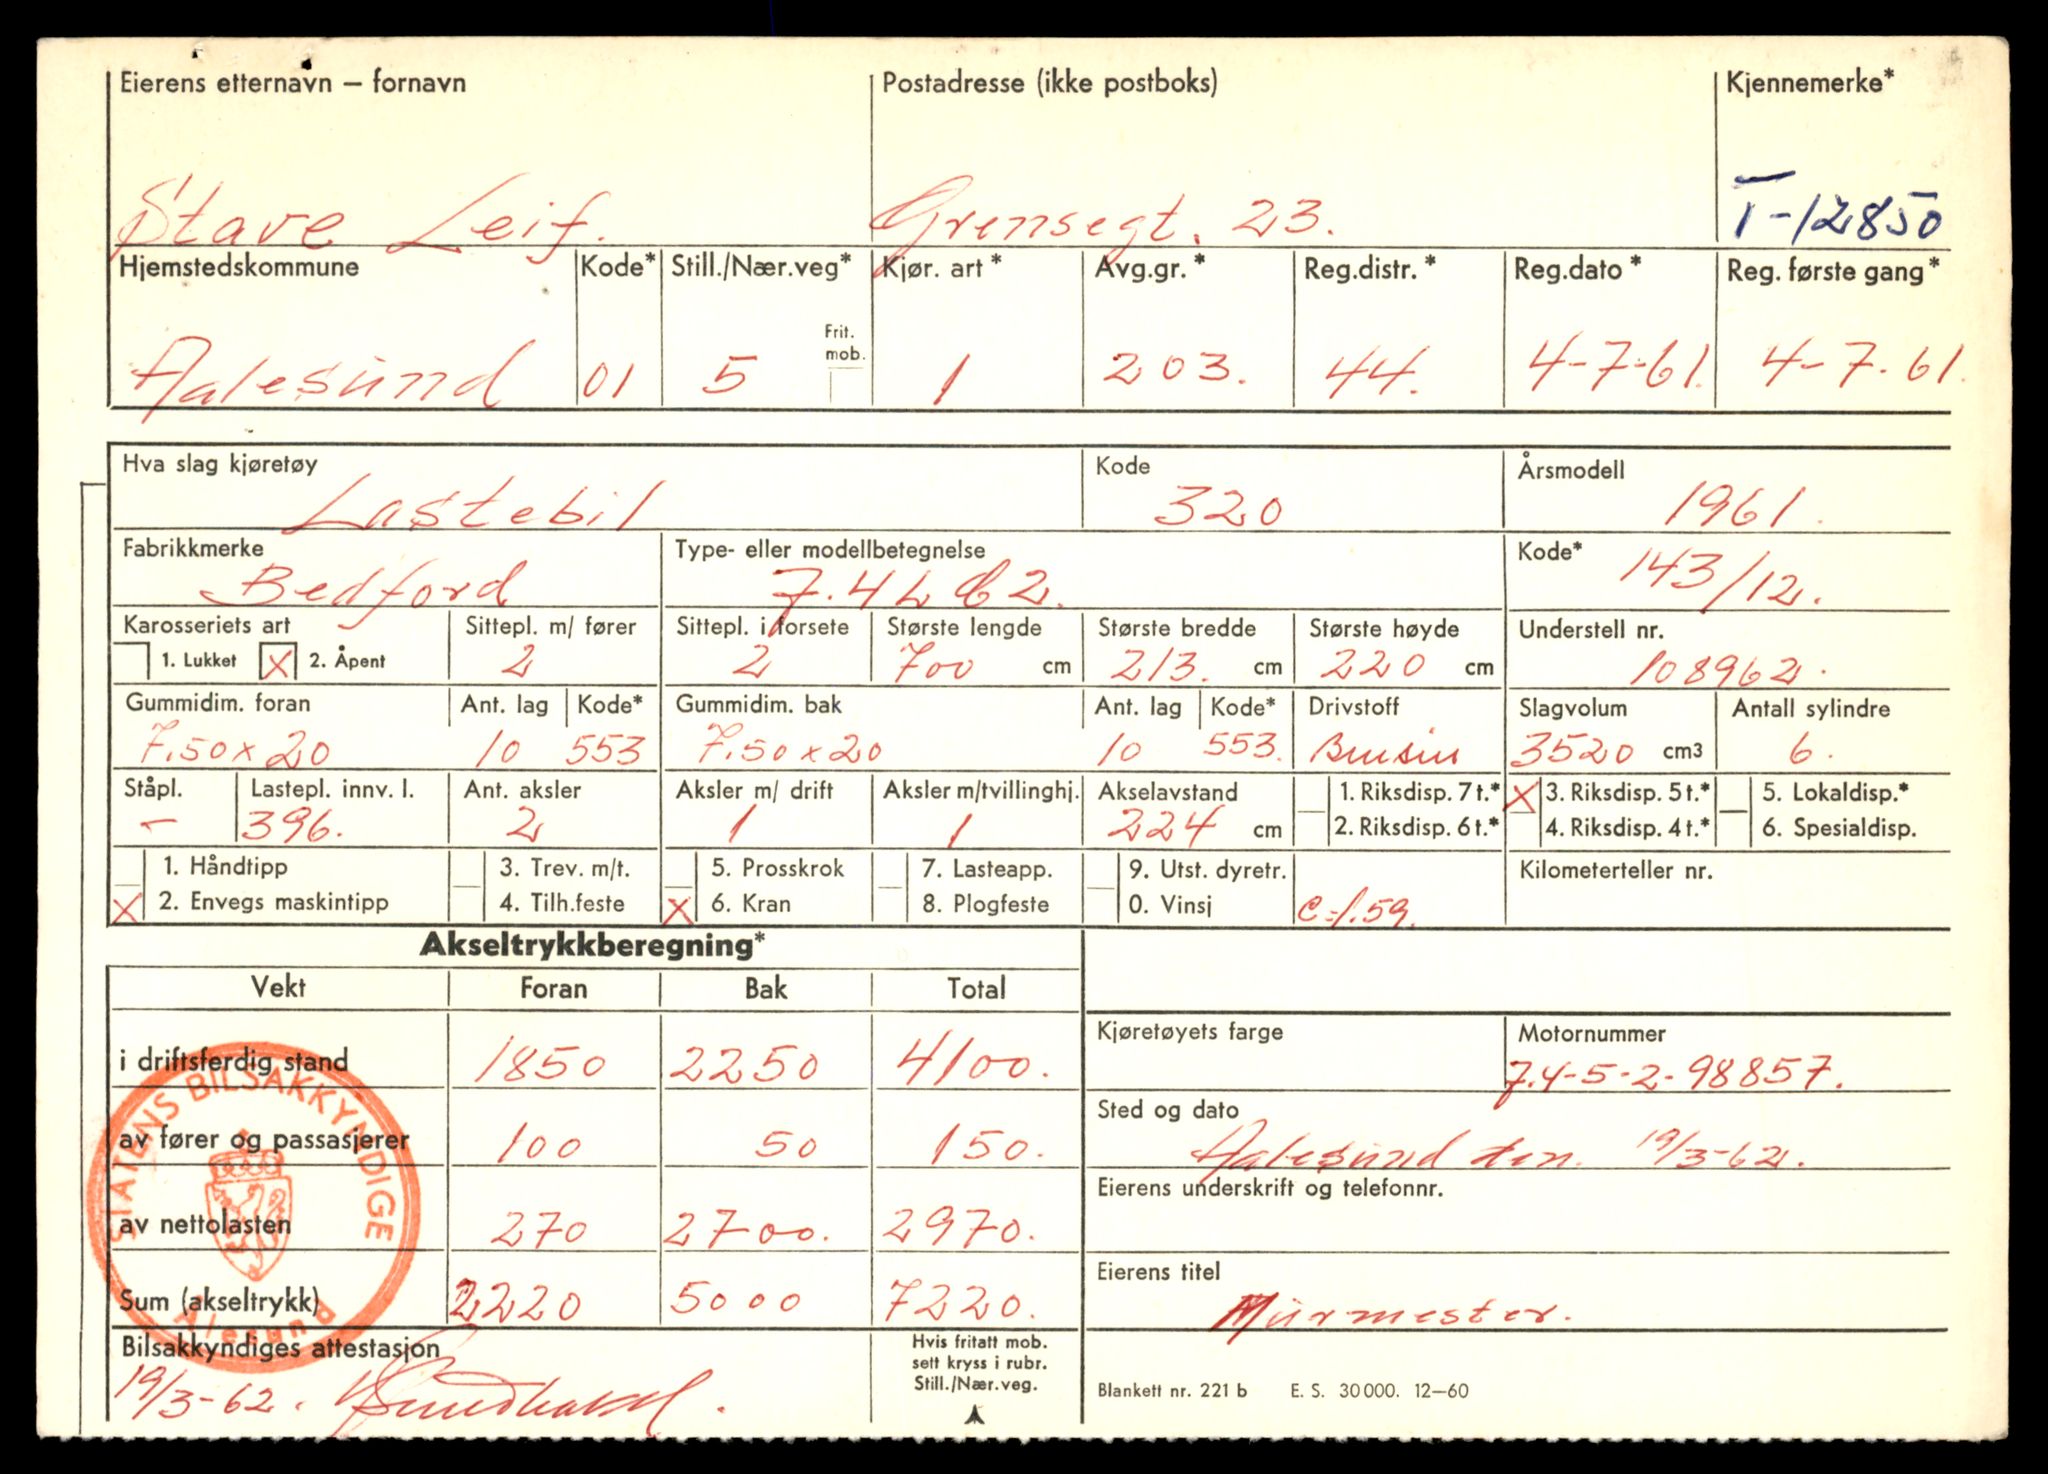 Eierens etternavn — fornavn Postadresse (ikke postboks) Kjennemerke*
Stave Leif. Grensegt. 23. T-12850
Hjemstedskommune Kode* Still./Nær.veg* Kjør. art* Avg.gr.* Reg.distr.* Reg.dato* Reg. første gang*
Frit. mob.
Aalesund 01 5 1 203. 44. 4-7-61. 4-7.61.
Hva slag kjøretøy Kode Årsmodell
Lastebil 320 1961.
Fabrikkmerke Type- eller modellbetegnelse Kode*
Bedford 143/12.
Karosseriets art Sittepl. m/ fører Sittepl. i forsete Største lengde Største bredde Største høyde Understell nr.
1. Lukket X 2. Åpent 2 2 700 cm 213. cm 220 cm 108962.
Gummidim. foran Ant. lag Kode* Gummidim. bak Ant. lag Kode* Drivstoff Slagvolum Antall sylindre
7.50x20 10 553 7.50x20 10 553. Bensin 3520 cm3 6.
Ståpl. Lastepl. innv. l. Ant. aksler Aksler m/ drift Aksler m/tvillinghj. Akselavstand 1. Riksdisp. 7 t.* X 3. Riksdisp. 5 t.* 5. Lokaldisp.*
– 396. 2 1 1 224 cm 2. Riksdisp. 6 t.* 4. Riksdisp. 4 t.* 6. Spesialdisp.
1. Håndtipp 3. Trev. m/t. 5. Prosskrok 7. Lasteapp. 9. Utst. dyretr. Kilometerteller nr.
X 2. Envegs maskintipp 4. Tilh.feste X 6. Kran 8. Plogfeste 0. Vinsj c=1.59.
Akseltrykkberegning*
Vekt Foran Bak Total
Kjøretøyets farge Motornummer
i driftsferdig stand 1850 2250 4100. 7.4-5-2-98857.
Sted og dato
av fører og passasjerer 100 50 150. Aalesund den. 19/3-62.
Eierens underskrift og telefonnr.
av nettolasten 270 2700. 2970.
Eierens titel
Sum (akseltrykk) 2220 5000 7220. Murmester.
STATENS BILSAKKYNDIGE
Ålesund
Bilsakkyndiges attestasjon Hvis fritatt mob.
sett kryss i rubr.
Still./Nær.veg.
19/3-62.
Blankett nr. 221 b E. S. 30 000. 12—60